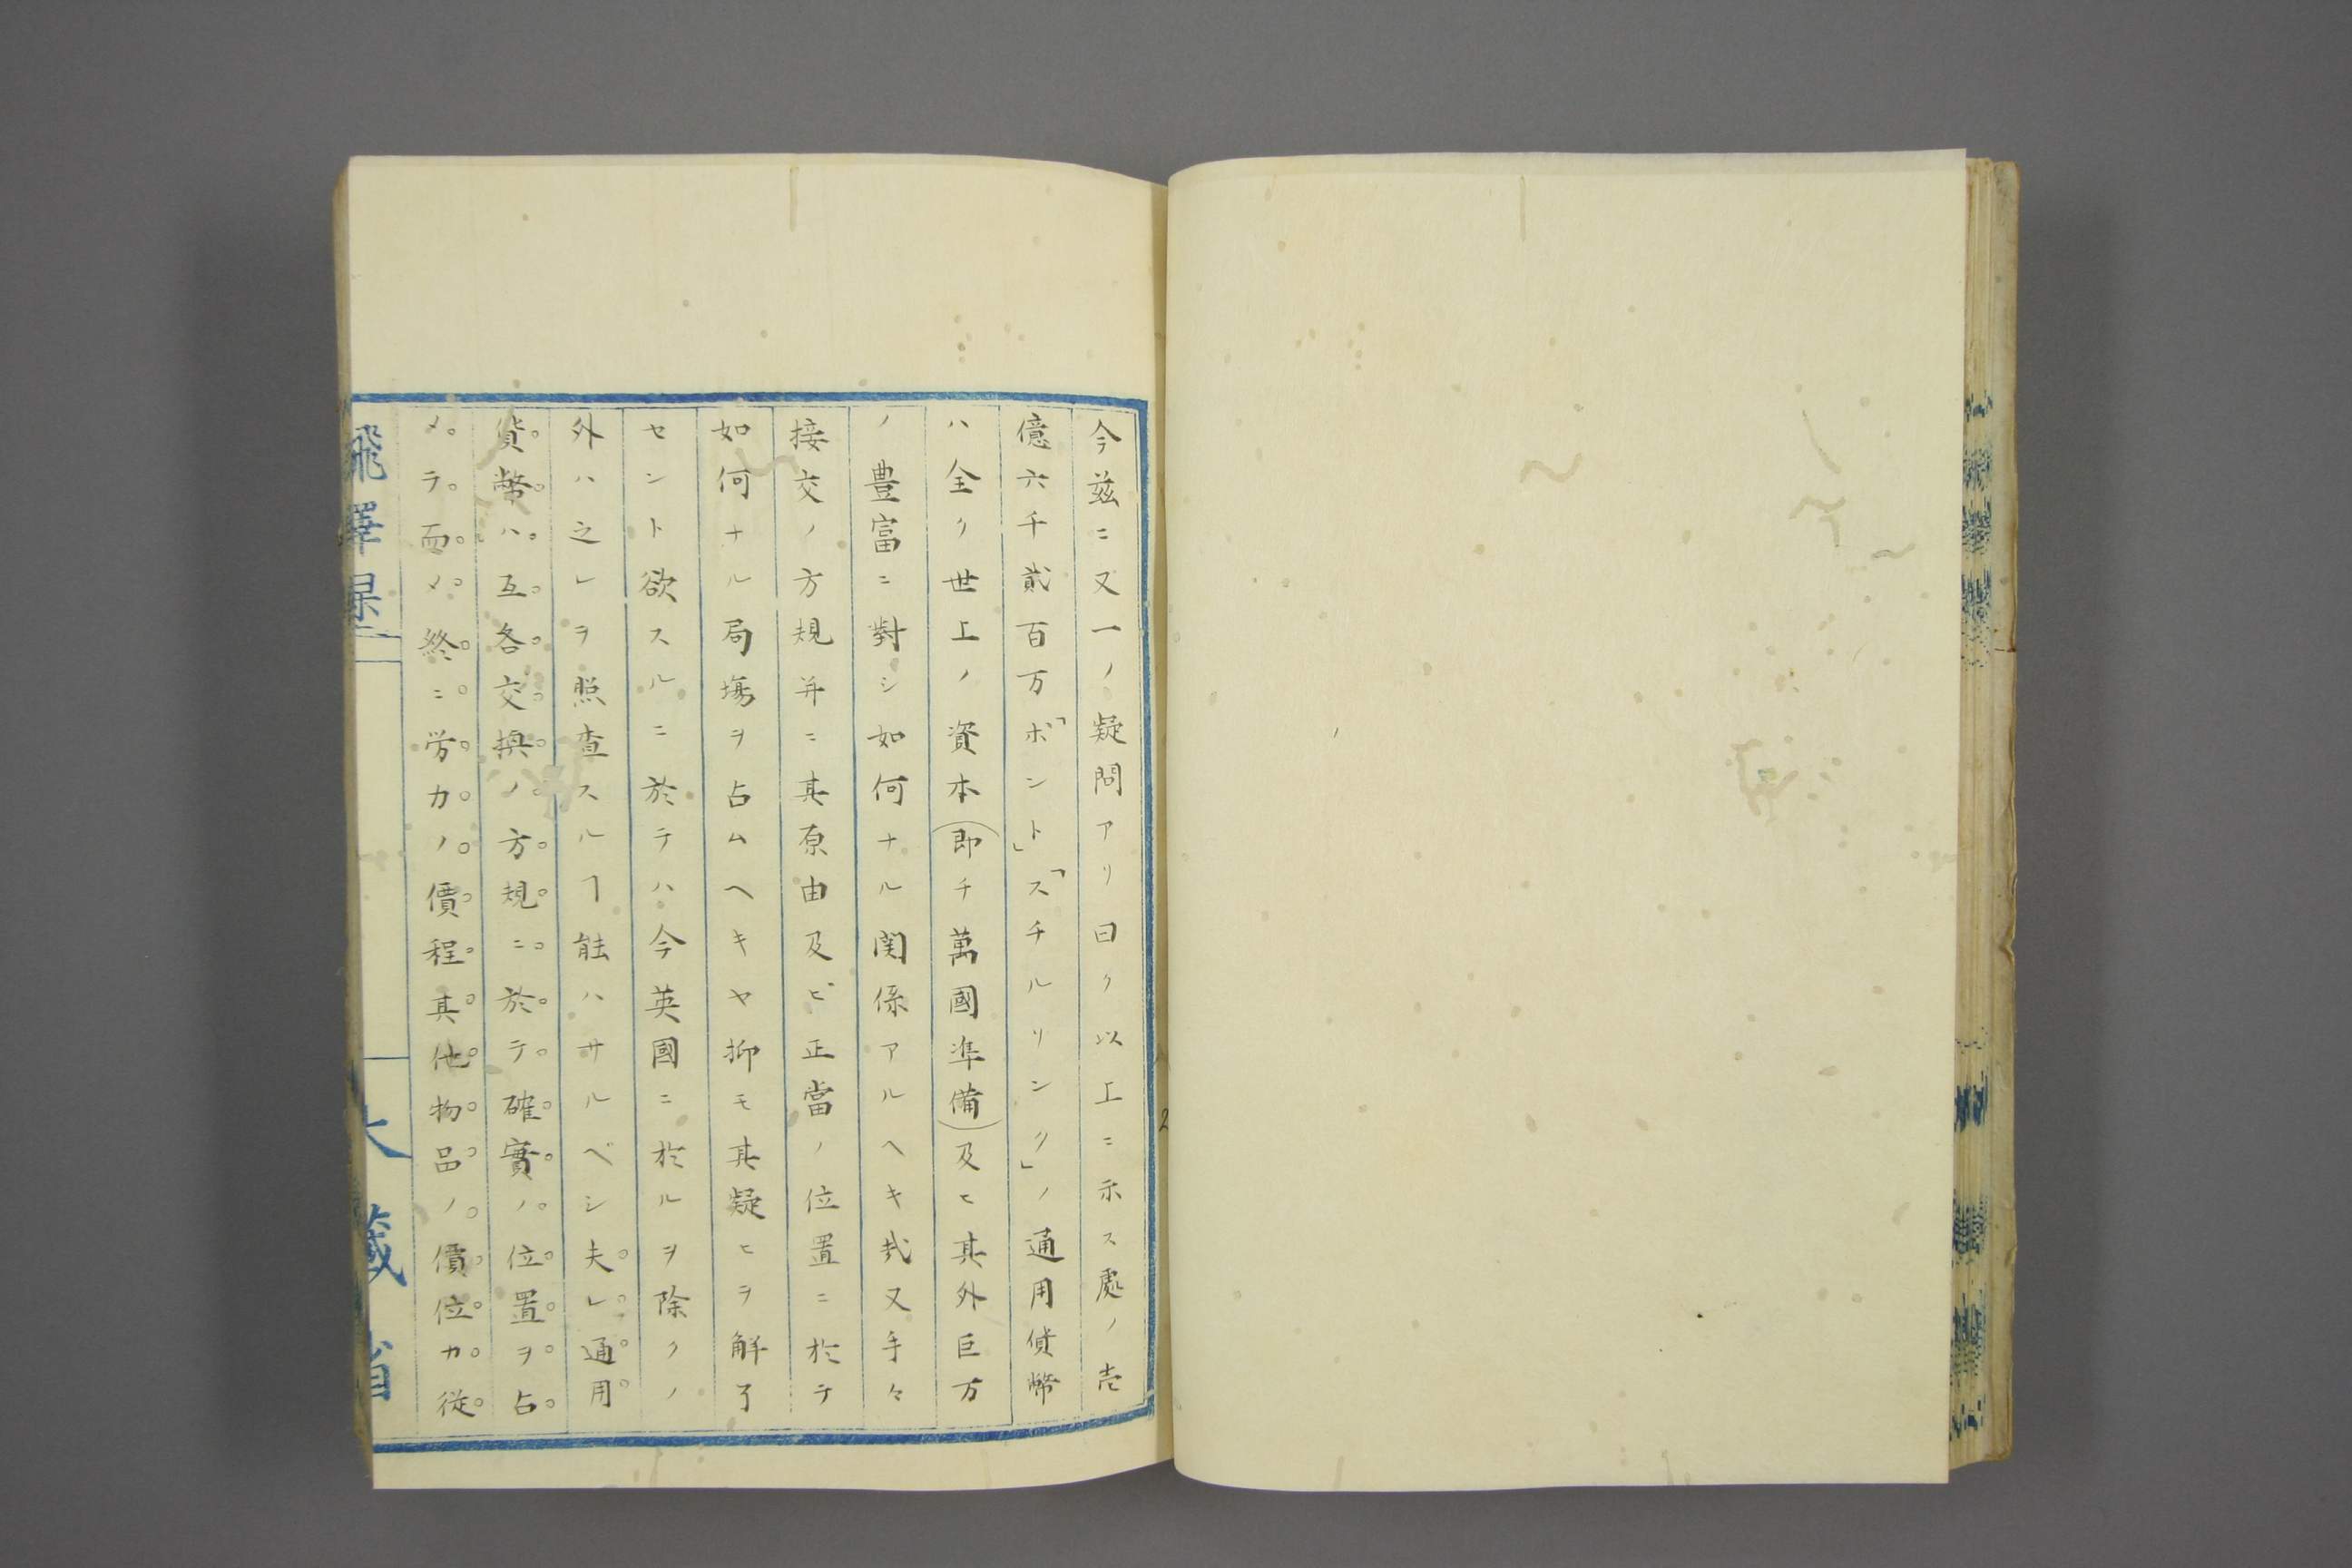 今茲ニ又一ノ疑問アリ曰ク以上ニ示ス處ノ壱
億六千貳百万「ボント」「スチルリンク」ノ通用貨幣
ハ全ク世上ノ資本(即チ萬國準備)及ヒ其外巨万
ノ豊富ニ對シ如何ナル関係アルヘキ㢤又手々
接交ノ方規并ニ其原由及ビ正當ノ位置ニ於テ
如何ナル局塲ヲ占ムヘキヤ抑モ其疑ヒヲ解了
セント欲スルニ於テハ今英國ニ於ルヲ除クノ
外ハ之レヲ照査スルヿ能ハサルベシ夫レ通用
貨幣ハ互各交換ノ方規ニ於テ確實ノ位置ヲ占
メテ而メ終ニ労力ノ價程其他物品ノ價位カ従
大藏省